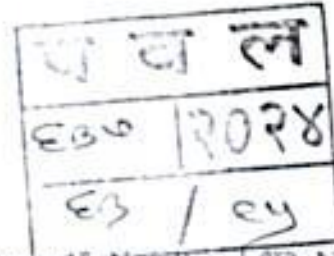 प व ल
६३७ | २०२४
६३ / ८५